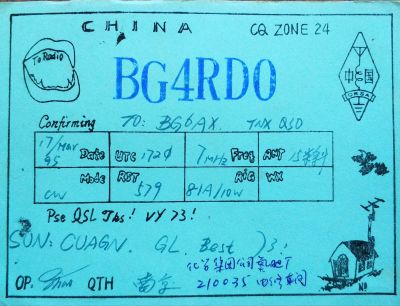 CHINA CQ ZONE 24
To Radio
BG4RDO
中国
CRSA
Confirming TO: BG6AX. TNX QSO
17/Mar 95 Date UTC 1720 7MHz Freq ANT
Mode CW RST 579 81A/10W RIG WX
Pse QSL Tks! VY 73!
SUN: CUAGN. GL. Best 73!
化学集团公司氮肥厂
OP. QTH 南京 210035